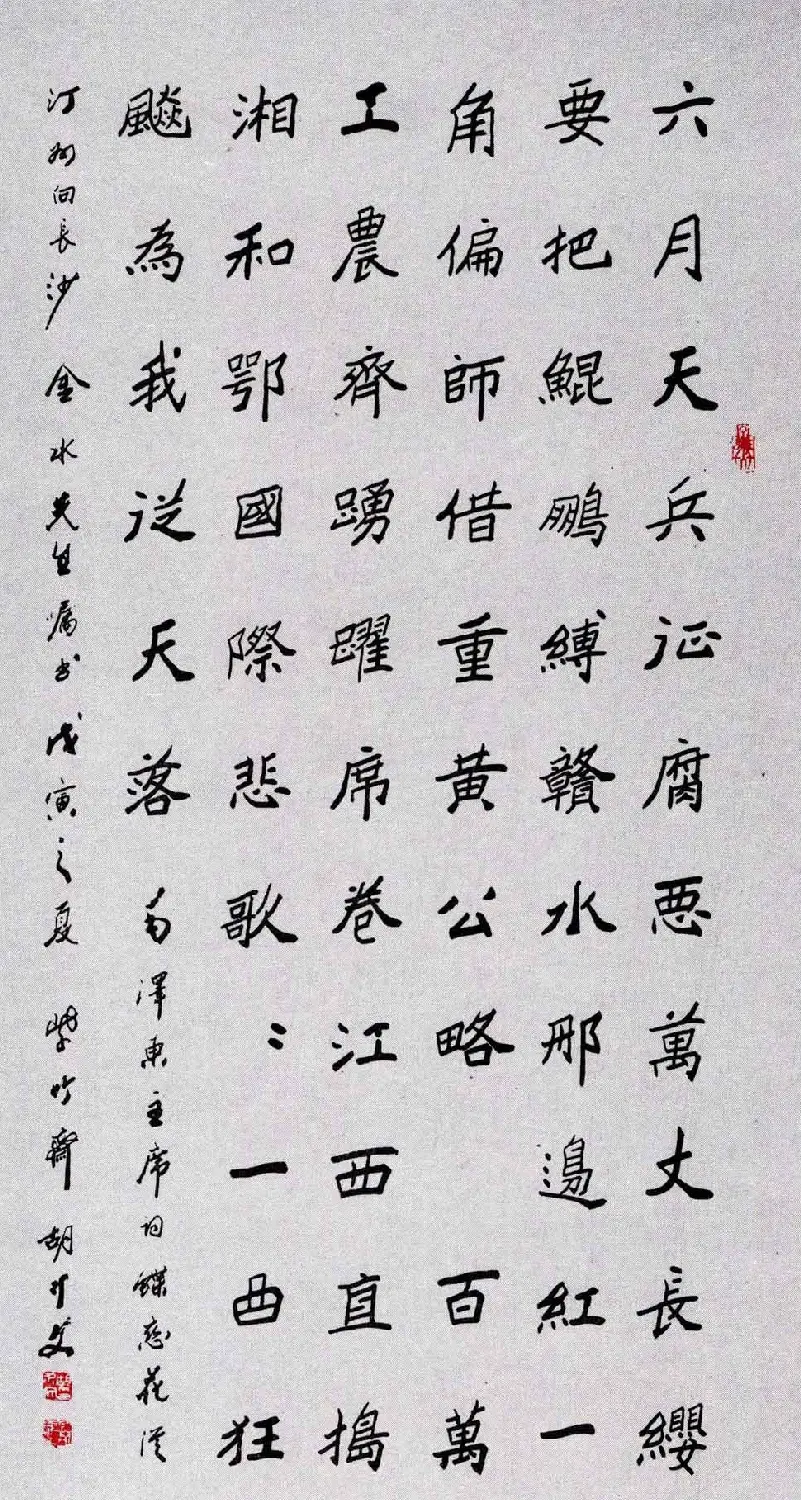 六月天兵征腐悪萬丈長纓
要把鯤鵬縛贛水那邊紅一
角偏師借重黄公略 百萬
工農齊踴躍席卷江西直搗
湘和鄂國際悲歌〻一曲狂
飈為我從天落 毛澤東主席词蝶恋花從
汀州向長沙 金水先生嘱书 戊寅之夏 紫竹齋 胡